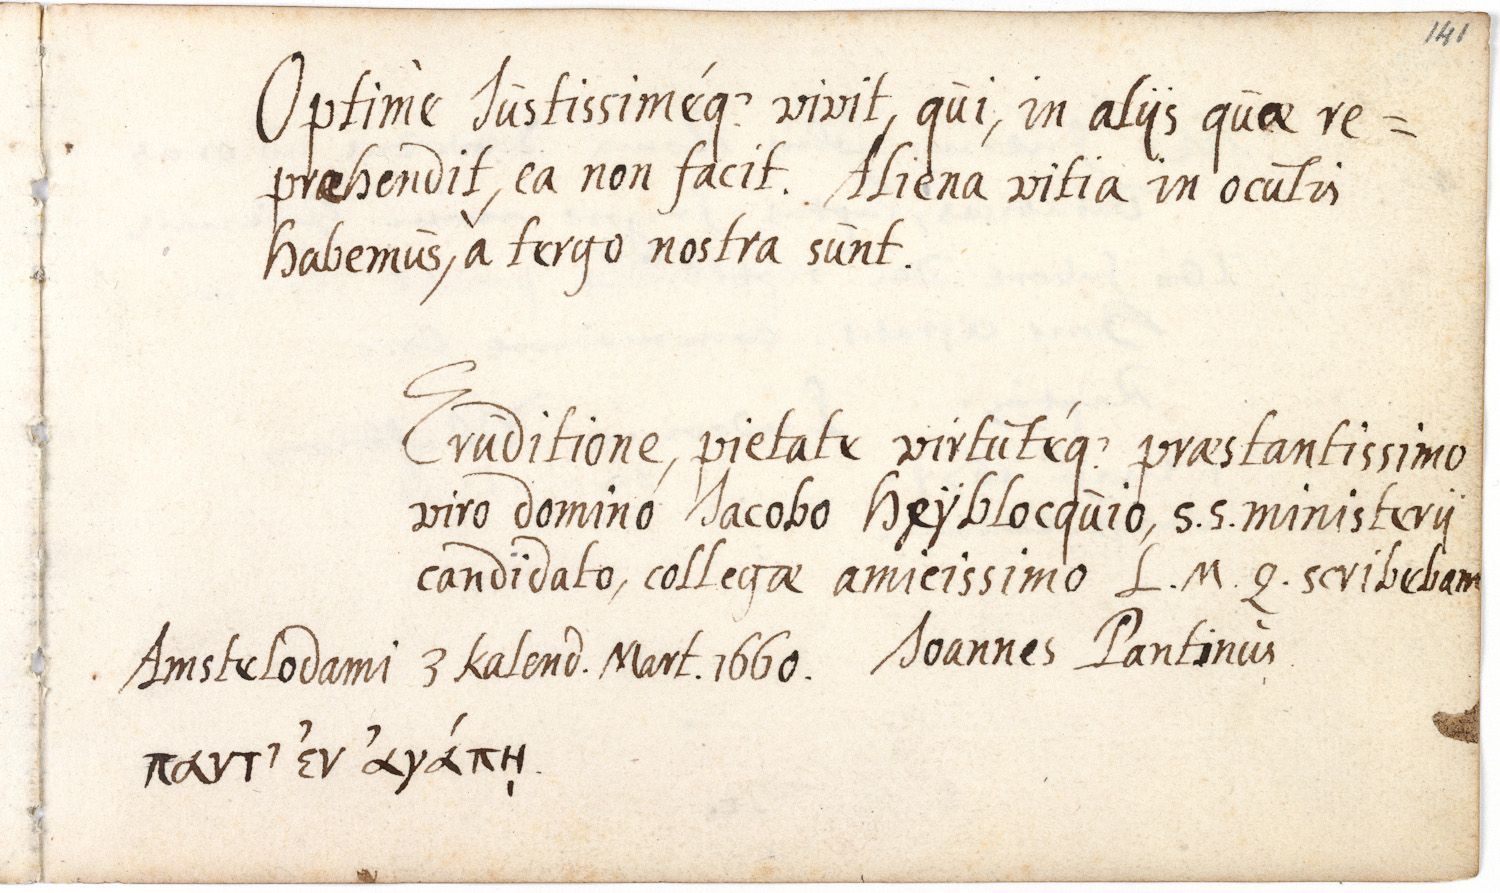 141
Optimè Justissiméq; vivit, qui, in alijs quæ re=
præhendit, ea non facit. Aliena vitia in oculis
habemus, a tergo nostra sunt.
Eruditione, pietate virtutéq; præstantissimo
viro domino Jacobo Heÿblocquio, s.s. ministerij
candidato, collegæ amicissimo L. M. Q. scribebam
Amstelodami 3 kalend. Mart. 1660. Joannes Pantinus
παντ' ἐν ἀγάπῃ.